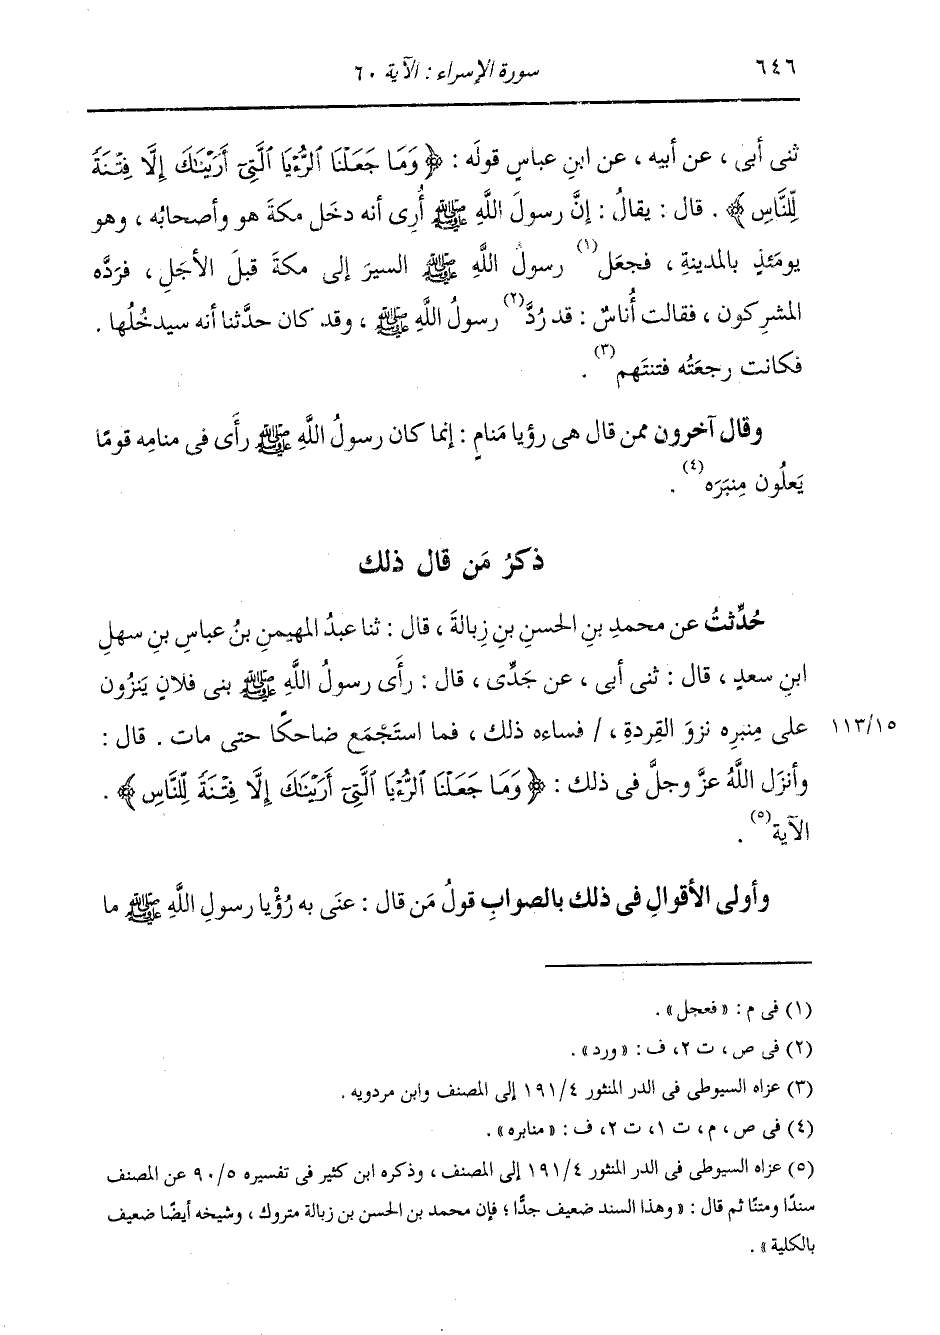 ٦٤٦ سورة الإسراء : الآية ٦٠
ثنى أبى ، عن أبيه ، عن ابنِ عباسٍ قولَه : ﴿ وَمَا جَعَلْنَا ٱلرُّءْيَا ٱلَّتِىٓ أَرَيْنَـٰكَ إِلَّا فِتْنَةً
لِّلنَّاسِ ﴾ . قال : يقالُ : إنَّ رسولَ اللَّهِ ﷺ أُرِى أنه دخَل مكةَ هو وأصحابُه ، وهو
يومَئذٍ بالمدينةِ ، فجعَل(١) رسولُ اللَّهِ ﷺ السيرَ إلى مكةَ قبلَ الأجَلِ ، فردَّه
المشركون ، فقالت أُناسٌ : قد رُدَّ(٢) رسولُ اللَّهِ ﷺ ، وقد كان حدَّثنا أنه سيدخُلُها .
فكانت رجعَتُه فتنتَهم(٣) .
وقال آخرون ممن قال هى رؤيا مَنامٍ : إنما كان رسولُ اللَّهِ ﷺ رأَى فى منامِه قومًا
يَعلُون مِنبَرَه(٤) .
ذكرُ مَن قال ذلك
حُدِّثتُ عن محمدِ بنِ الحسنِ بنِ زِبالةَ ، قال : ثنا عبدُ المهيمنِ بنُ عباسِ بنِ سهلِ
ابنِ سعدٍ ، قال : ثنى أبى ، عن جَدِّى ، قال : رأَى رسولُ اللَّهِ ﷺ بنى فلانٍ يَنزُون
على مِنبرِه نزوَ القِردةِ ، / فساءه ذلك ، فما استَجْمَع ضاحكًا حتى مات . قال : ١١٣/١٥
وأنزَل اللَّهُ عزَّ وجلَّ فى ذلك : ﴿ وَمَا جَعَلْنَا ٱلرُّءْيَا ٱلَّتِىٓ أَرَيْنَـٰكَ إِلَّا فِتْنَةً لِّلنَّاسِ ﴾ .
الآية(٥) .
وأولى الأقوالِ فى ذلك بالصوابِ قولُ مَن قال : عنَى به رُؤْيا رسولِ اللَّهِ ﷺ ما
(١) فى م : « فعجل » .
(٢) فى ص ، ت ٢، ف : « ورد » .
(٣) عزاه السيوطى فى الدر المنثور ١٩١/٤ إلى المصنف وابن مردويه .
(٤) فى ص ، م ، ت ١، ت ٢، ف : « منابره » .
(٥) عزاه السيوطى فى الدر المنثور ١٩١/٤ إلى المصنف ، وذكره ابن كثير فى تفسيره ٩٠/٥ عن المصنف
سندًا ومتنًا ثم قال : « وهذا السند ضعيف جدًّا ؛ فإن محمد بن الحسن بن زبالة متروك ، وشيخه أيضًا ضعيف
بالكلية » .